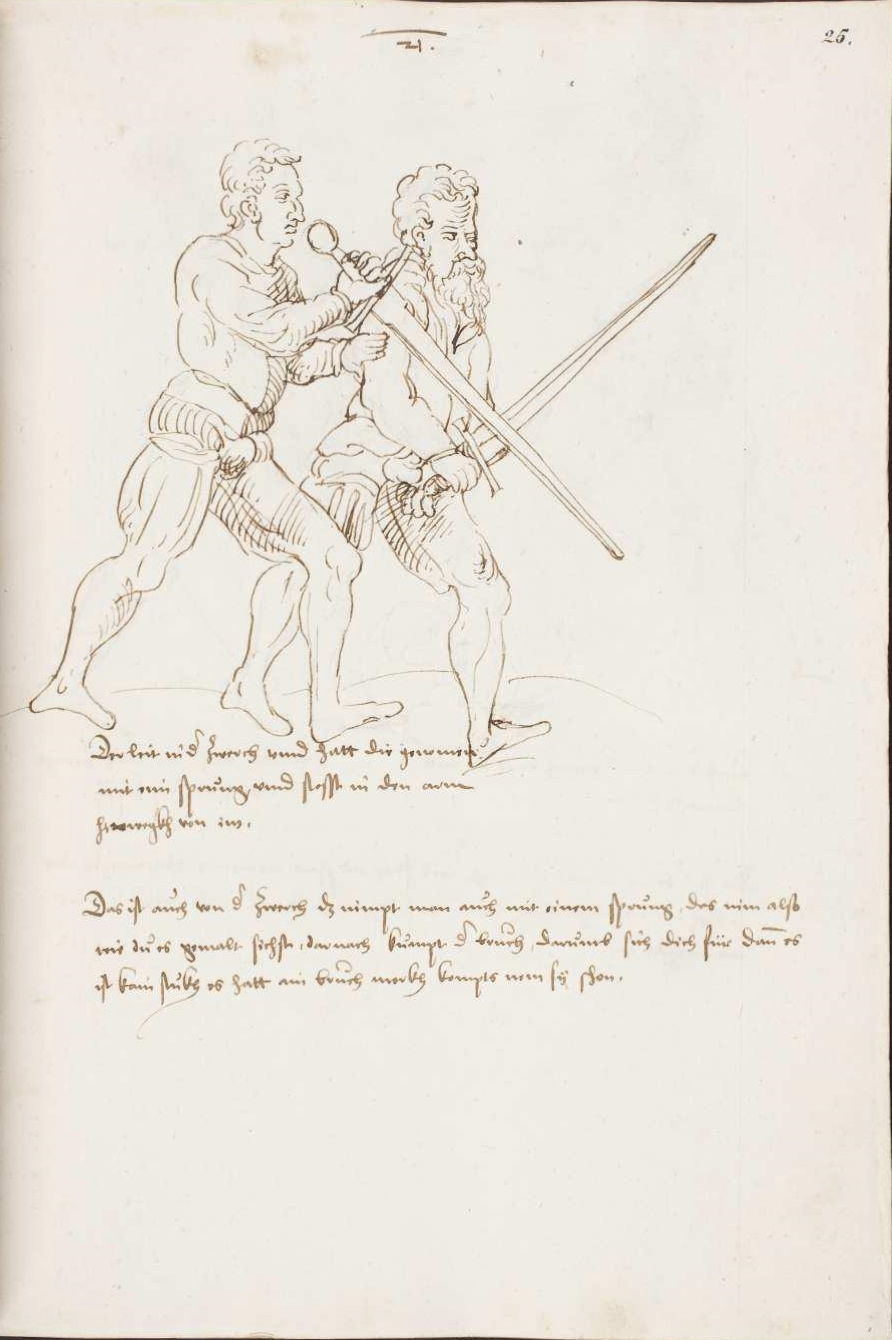 21.
25.
Der leit in d̾ zwerch vnnd hatt die genomen
mit ein sprung, vnnd stosst in den arm
hinwegkh von im.
Das ist auch von d̾ zwerch dz nimpt man auch mit einem sprung, das nim also
wie du es gemalt sichst, darnach kumpt d̾ bruch, darumb sich dich für dan̄ es
ist kain stukh es hatt ain bruch merkh kompts nem sÿ schon.